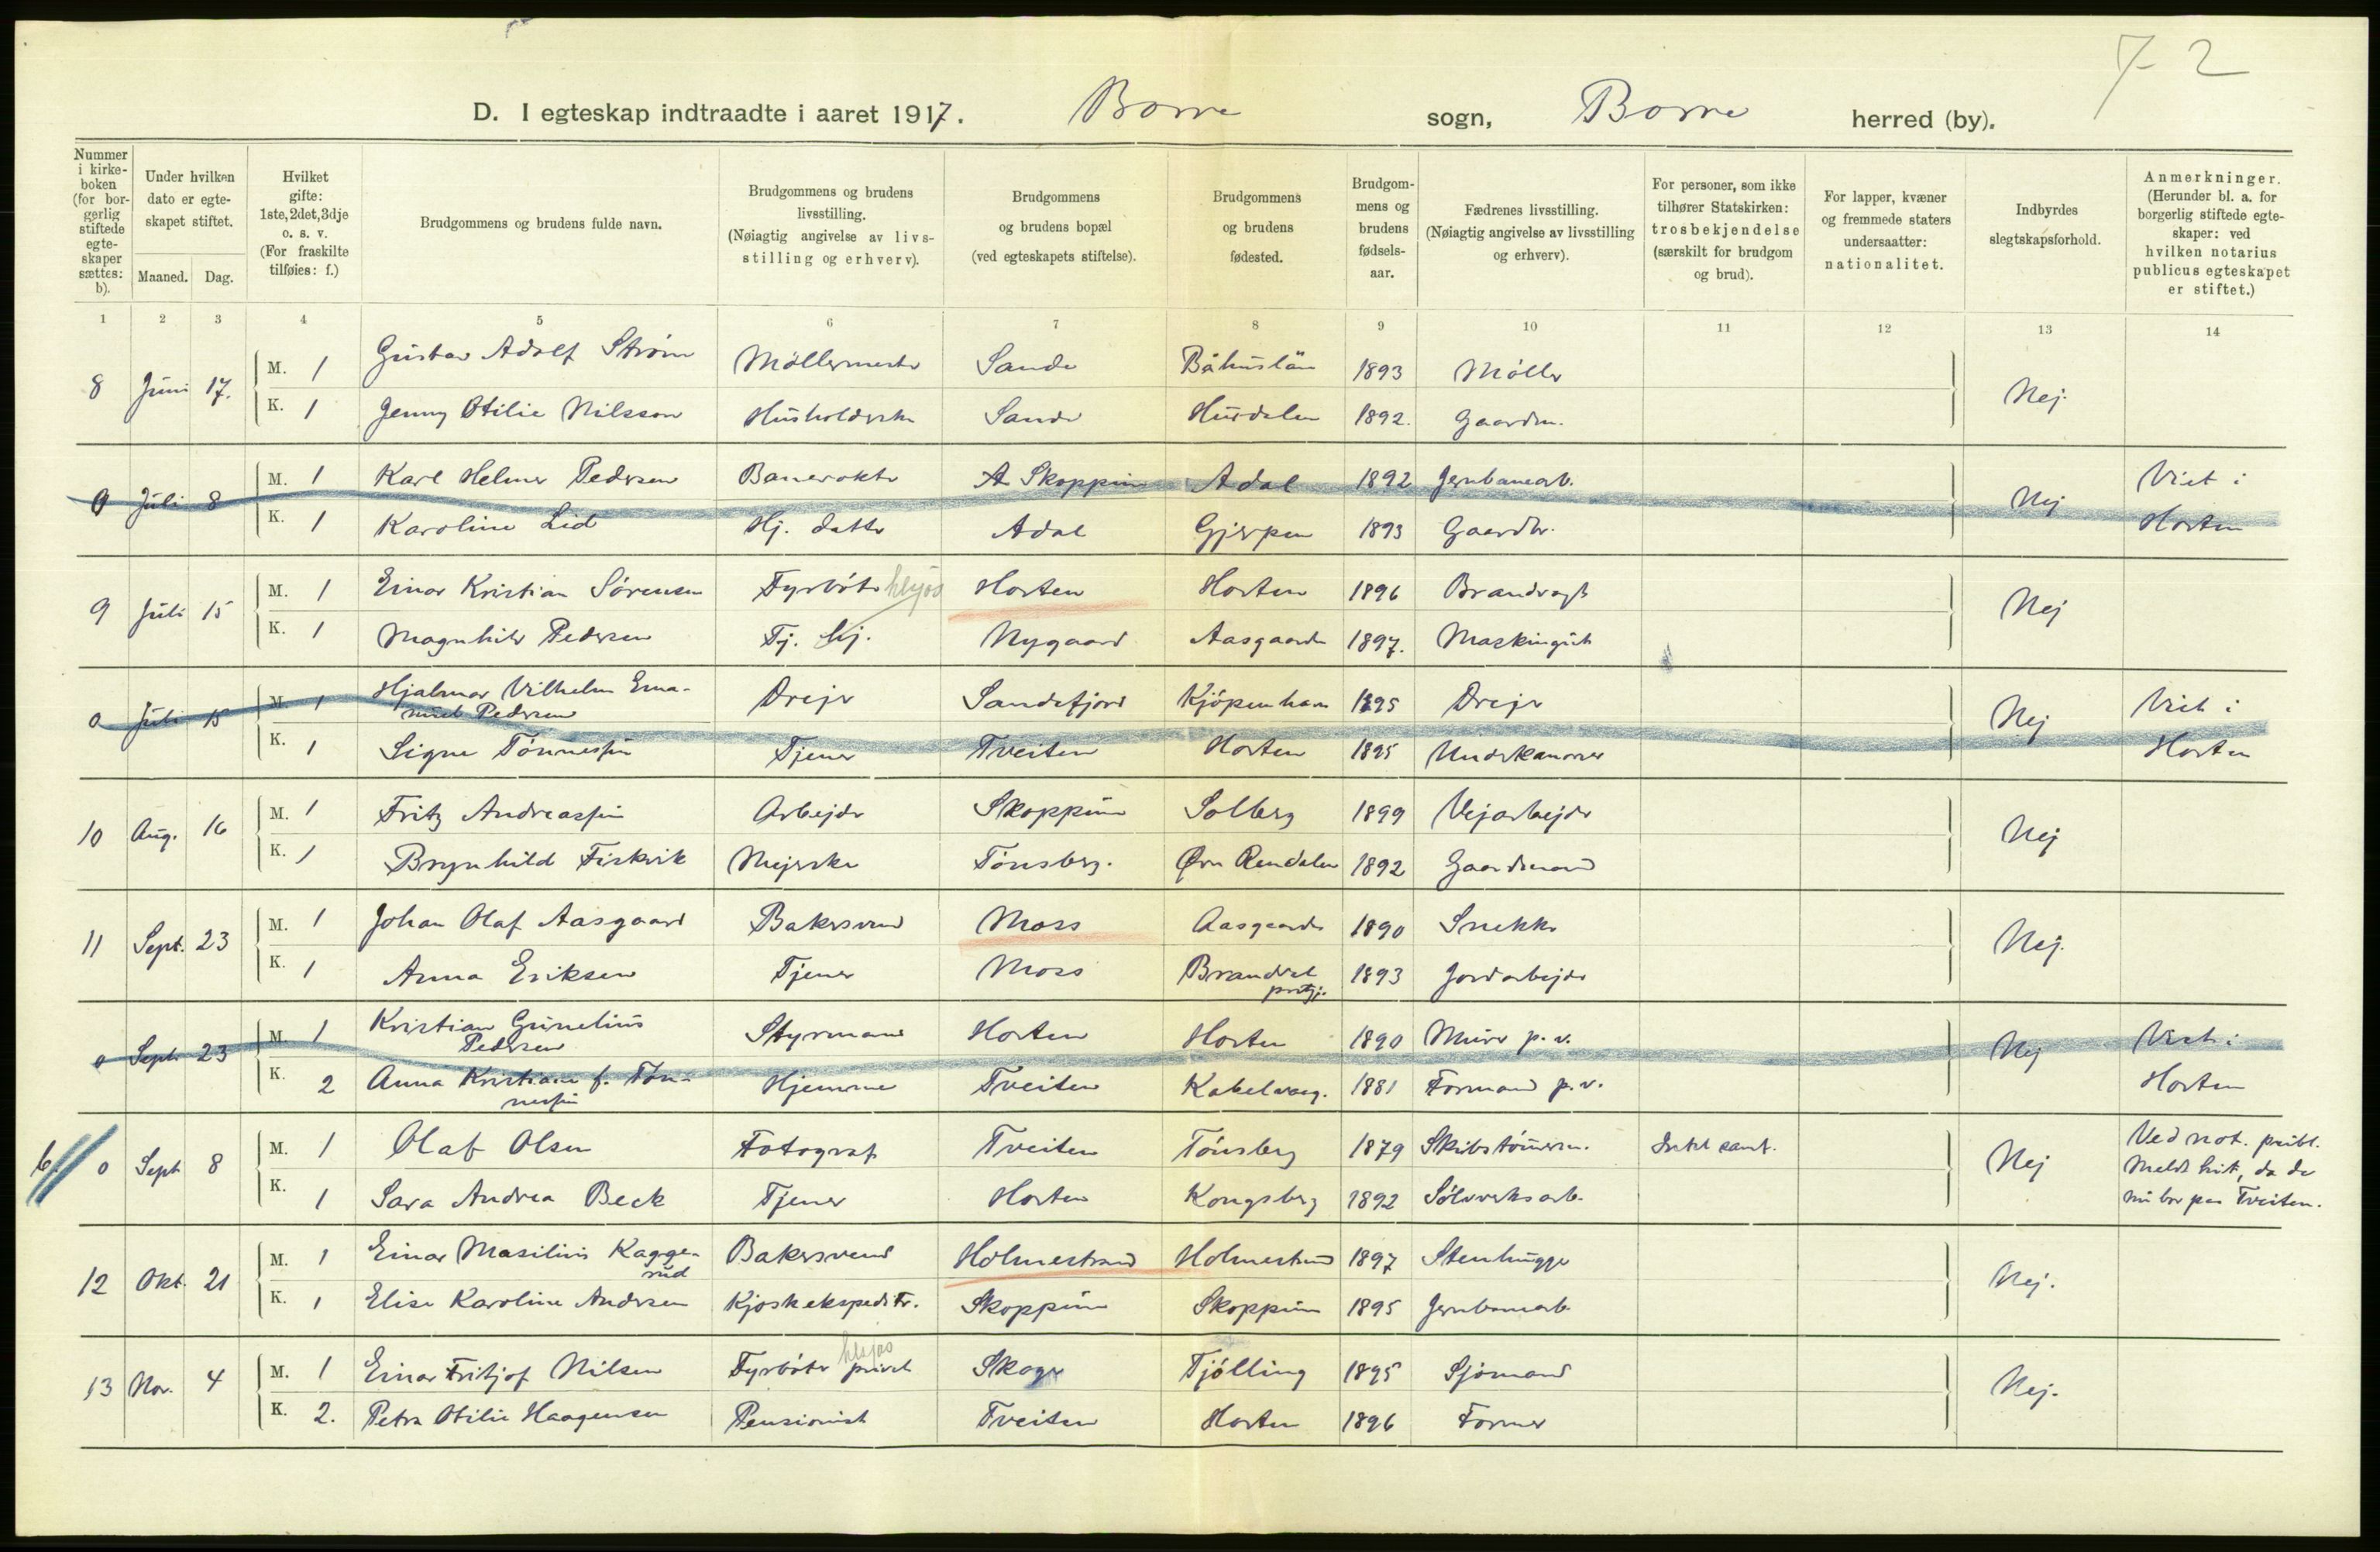 7-2
D. I egteskap indtraadte i aaret 1917. Borre sogn, Borre herred (by).
Nummer i kirke-boken (for bor-gerlig stiftede egte-skaper sættes: b).
Under hvilken dato er egte-skapet stiftet.
Maaned. Dag.
Hvilket gifte: 1ste, 2det, 3dje o. s. v. (For fraskilte tilføies: f.)
Brudgommens og brudens fulde navn.
Brudgommens og brudens livsstilling. (Nøiagtig angivelse av livs-stilling og erhverv).
Brudgommens og brudens bopæl (ved egteskapets stiftelse).
Brudgommens og brudens fødested.
Brudgom-mens og brudens fødsels-aar.
Fædrenes livsstilling. (Nøiagtig angivelse av livsstilling og erhverv).
For personer, som ikke tilhører Statskirken: trosbekjendelse (særskilt for brudgom og brud).
For lapper, kvæner og fremmede staters undersaatter: nationalitet.
Indbyrdes slegtskapsforhold.
Anmerkninger. (Herunder bl. a. for borgerlig stiftede egte-skaper: ved hvilken notarius publicus egteskapet er stiftet.)
1 2 3 4 5 6 7 8 9 10 11 12 13 14
8 Juni 17. M. 1 Gustav Adolf Strøm Møllermester Sande Båhuslän 1893 Møller Nej.
K. 1 Jenny Otilie Nilsson Husholderske Sande Hurdalen 1892. Gaardm.
0 Juli 8 M. 1 Karl Helmer Pedersen Banevokter Skoppum Adal 1892 Jernbanearb. Nej Viet i
K. 1 Karoline Lid Hj. datter Adal Gjerpen 1893 Gaardbr. Horten
9 Juli 15 M. 1 Einar Kristian Sørensen Fyrbøter Horten Horten 1896 Brandvagt Nej
K. 1 Magnhild Pedersen Tj. hj. Nygaard Aasgaarden 1897. Maskingist
0 Juli 15 M. 1 Hjalmar Vilhelm Ema-
nuel Pedersen Drejer Sandefjord Kjøpenhavn 1895 Drejer Nej Viet i
K. 1 Signe Tønnessen Tjener Tveiten Horten 1895 Underkanoner Horten
10 Aug. 16 M. 1 Fritz Andreassen Arbejder Skoppum Solberg 1899 Vejarbejder Nej
K. 1 Brynhild Fiskvik Mejerske Tønsberg. Øvre Rendalen 1892 Gaardmand
11 Sept. 23 M. 1 Johan Olaf Aasgaard Bakersvend Moss Aasgaarden 1890 Snekker Nej.
K. 1 Anna Eriksen Tjener Moss Brandval prstgj. 1893 Jordarbejder
0 Sept. 23 M. 1 Kristian Grunelius
Pedersen Styrmand Horten Horten 1890 Murer p. v. Nej Viet i
K. 2 Anna Kristiane f. Tøn-
nessen Hjemme Tveiten Kabelvaag. 1881 Formand p. v. Horten
b. 0 Sept 8 M. 1 Olaf Olsen Fotograf Tveiten Tønsberg 1879 Skibstømmerm. Intet samf. Nej Ved not. publ.
Meldt hit, da de
K. 1 Sara Andrea Beck Tjener Horten Kongsberg 1892 Sølvverksarb. nu bor paa Tveiten.
12 Okt. 21 M. 1 Einar Masilius Kagge-
rud Bakersvend Holmestrand Holmestrand 1897 Stenhugger Nej.
K. 1 Elise Karoline Andersen Kjoskekspeditr. Skoppum Skoppum 1895 Jernbanearb.
13 Nov. 4 M. 1 Einar Fritjof Nilsen Fyrbøter privat Skoger Tjølling 1895 Sjømand Nej.
K. 2. Petra Otilie Haagensen Pensionist Tveiten Horten 1896 Former